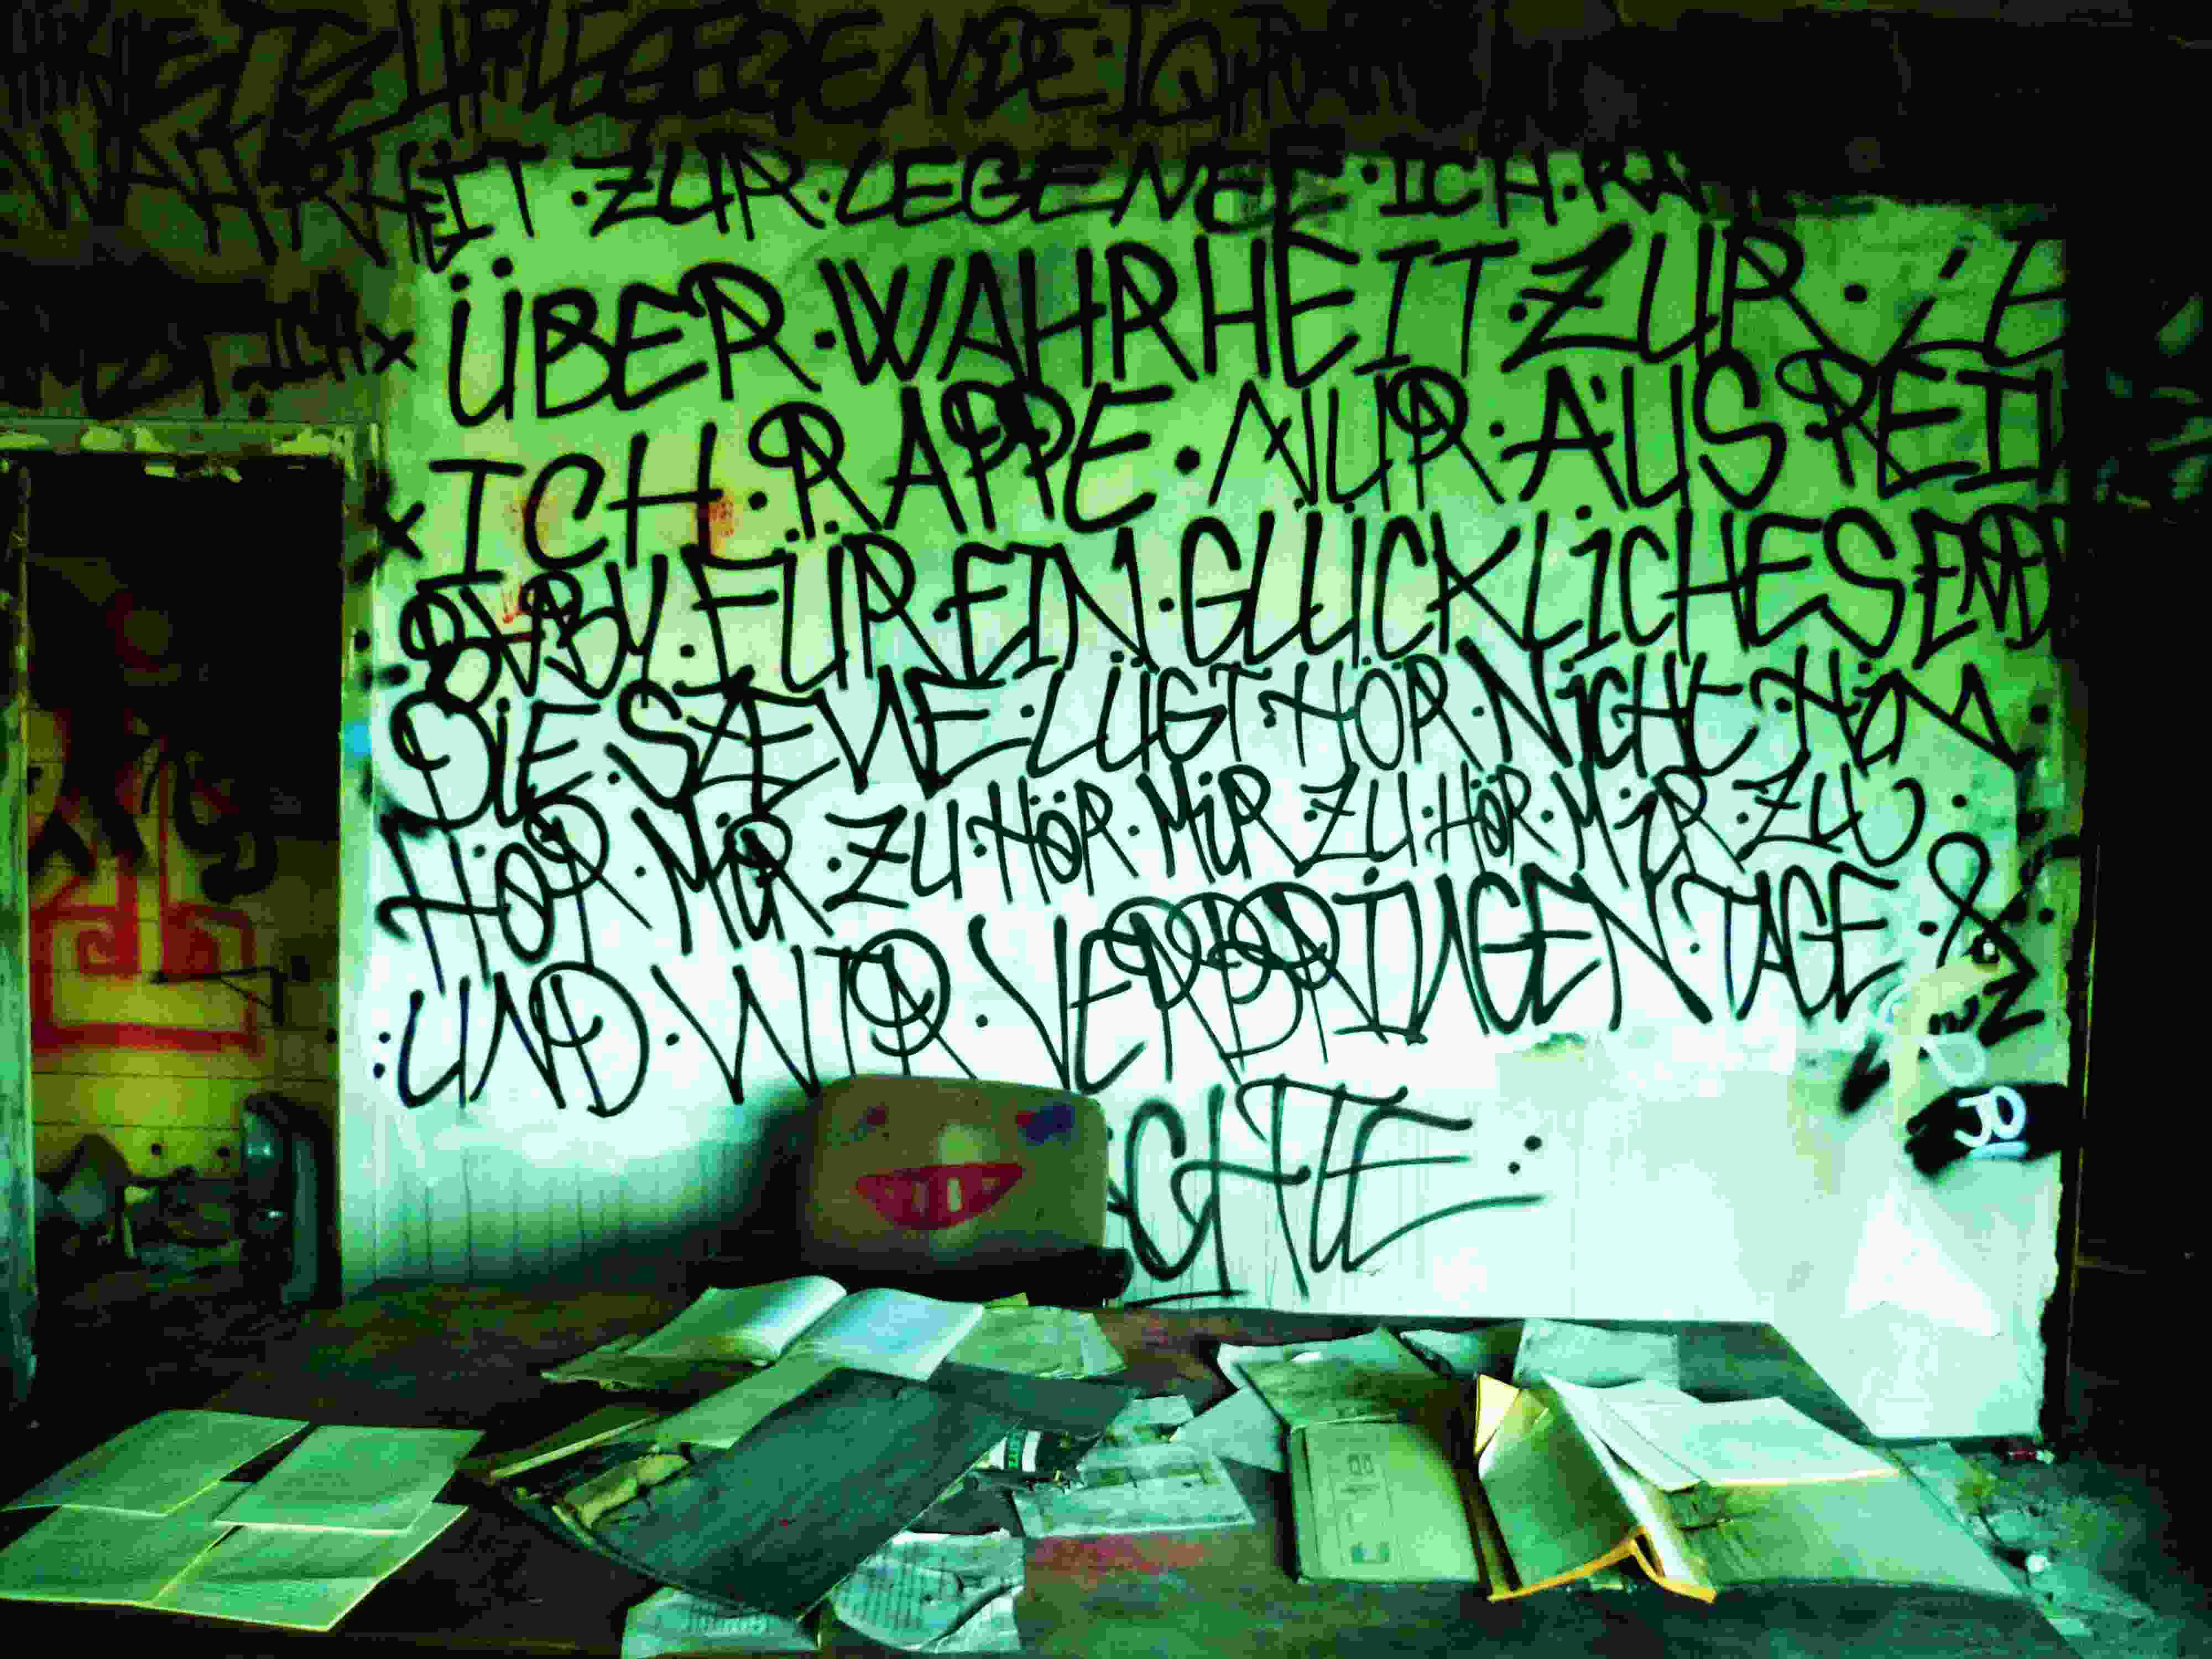 ZUR LEGENDE ICH
WAHRHEIT · ZUR · LEGENDE · ICH · RA
ICH X ÜBER · WAHRHEIT · ZUR · LE
X ICH · RAPPE · NUR · AUS REI
BABY · FÜR EIN · GLÜCKLICHES ENDE
DIE · SZENE · LÜGT · HÖR · NICHT · HIN
HÖR · MIR · ZU · HÖR · MIR · ZU · HÖR · MIR · ZU
: UND · WIR · VERBRINGEN · TAGE · &
CHTE :
JO